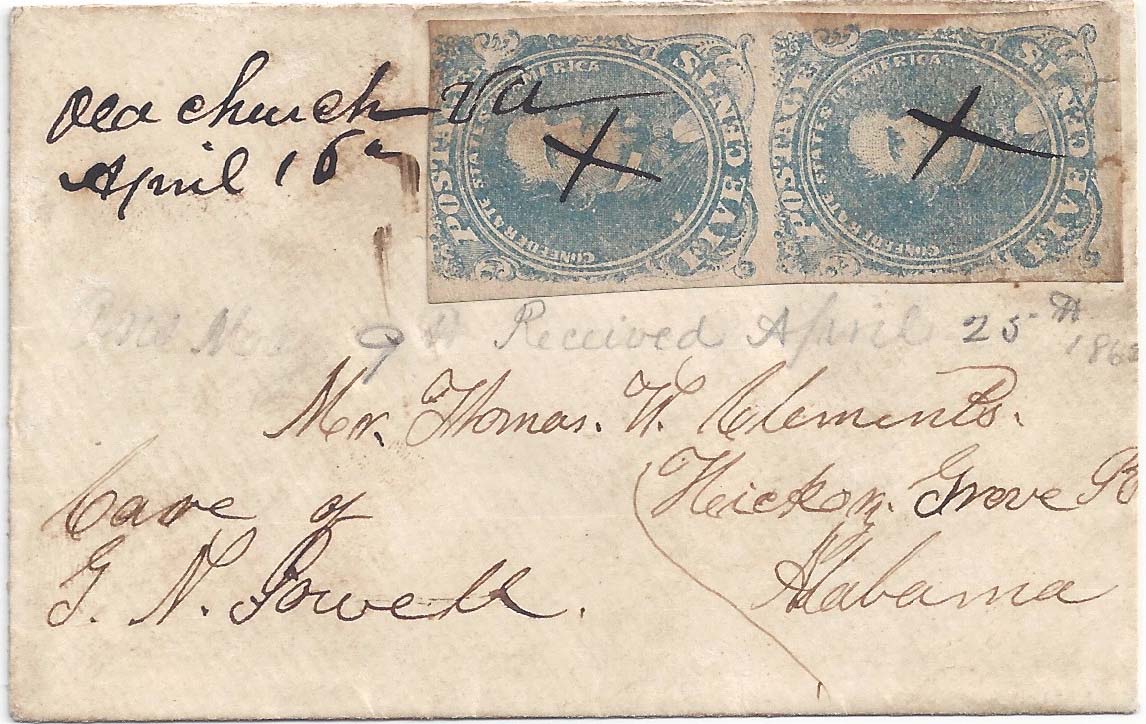 Old Church Va
April 16
POSTAGE
CONFEDERATE STATES OF AMERICA
FIVE CENTS
POSTAGE
CONFEDERATE STATES OF AMERICA
FIVE CENTS
9th Received April 25th
Mr. Thomas. W. Clements.
Hickory. Grove
Alabama
Care of
G. N. Powell.